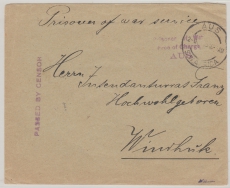 Prisoner of war service
AUS
PASSED BY CENSOR
AUS
Herrn
Intendanturrat Franz
Hochwohlgeboren
Windhuk